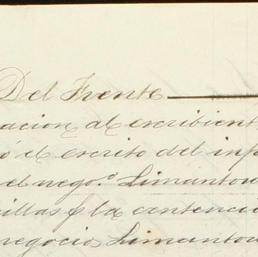 Del Frente
acion al escribient
ó el escrito del inf
el nego.º Limantou
illas y la sentenci
negocio Limantou